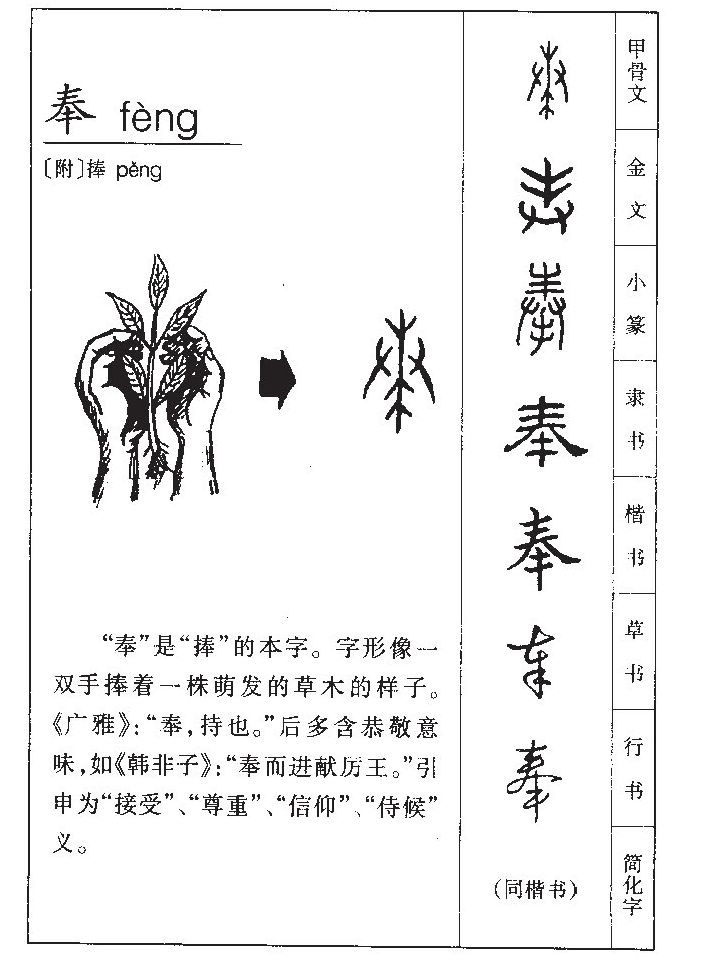 奉 fèng
〔附〕捧 pěng
“奉”是“捧”的本字。字形像一
双手捧着一株萌发的草木的样子。
《广雅》：“奉，持也。”后多含恭敬意
味，如《韩非子》：“奉而进献厉王。”引
申为“接受”、“尊重”、“信仰”、“侍候”
义。
奉 甲骨文
奉 金文
奉 小篆
奉 隶书
奉 楷书
奉 草书
奉 行书
（同楷书） 简化字